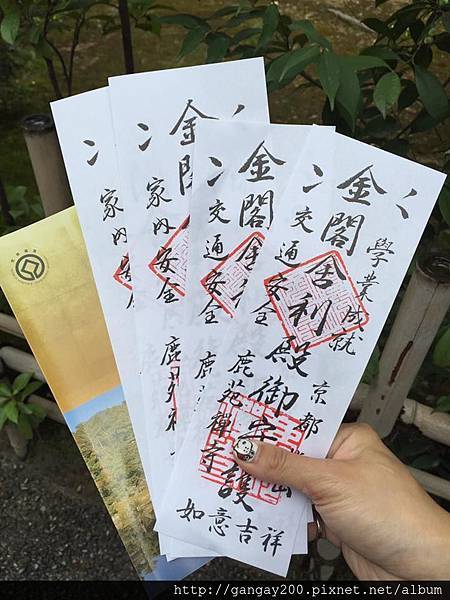 學業成就
京都
金閣舎利殿御守護
交通安全
鹿苑禅寺
如意吉祥
金閣舎
交通安全
鹿
金閣
家内安全
鹿苑
家内安全
http://gangay200.pixnet.net/album